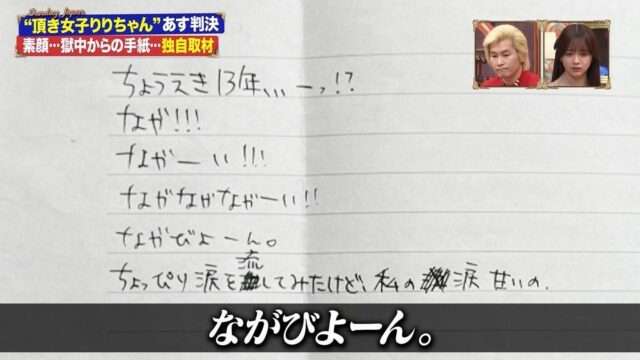 Sunday Japon
“頂き女子りりちゃん”あす判決
素顔…獄中からの手紙…独自取材
ちょうえき13年、、、ーっ!?
なが!!!
ながーい!!!
ながながながーい!!
ながびよーん。
流
ちょっぴり涙をしてみたけど、私の涙 甘いの.
ながびよーん。